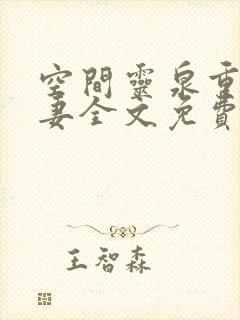 空間靈泉重
妻全文免費
王智森